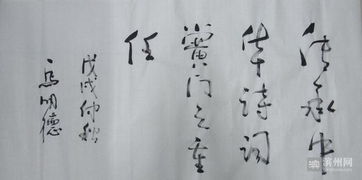 传承中
华诗词
黉门之重
任
戊戌仲秋
马明德
滨州网